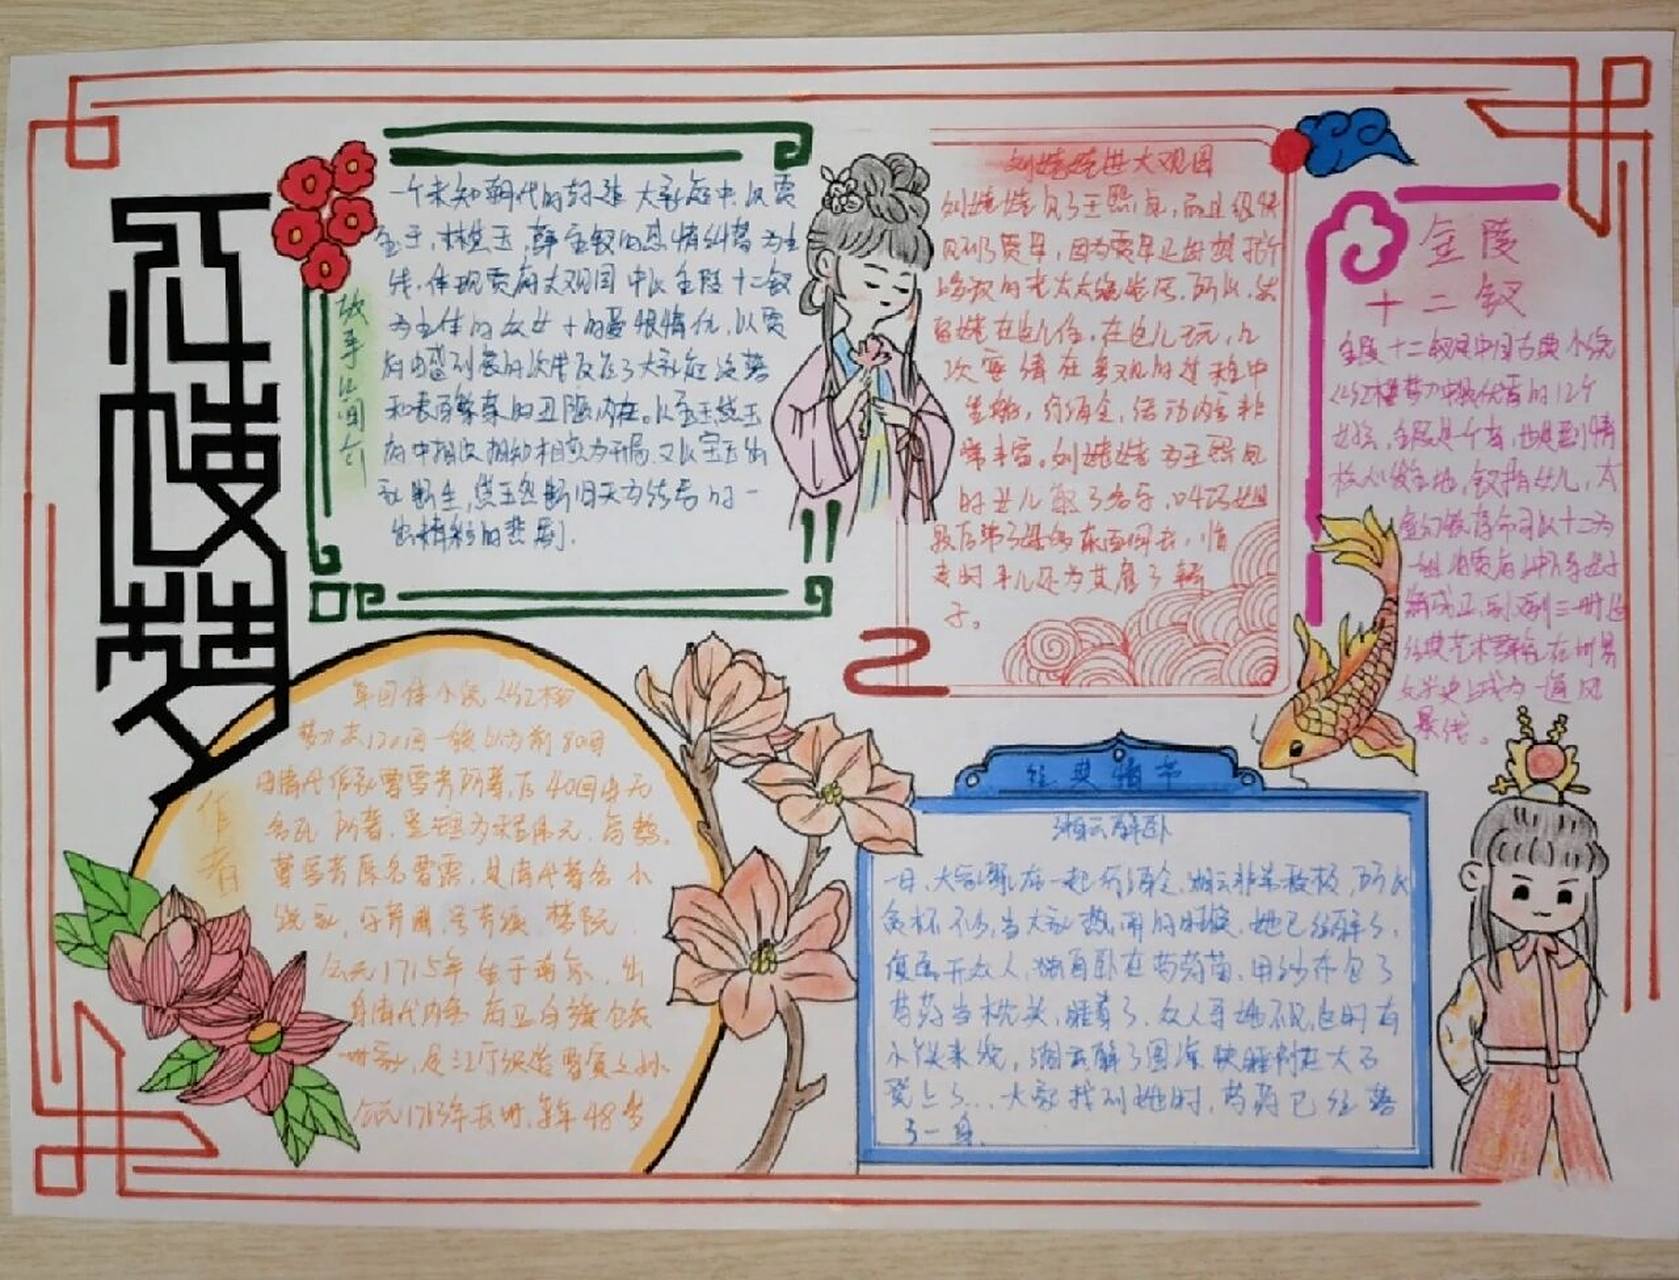 红楼梦
故事简介
一个未知朝代的封建大家庭中,以贾
宝玉,林黛玉,薛宝钗的感情纠葛为主
线,体现贾府大观园中以金陵十二钗
为主体的众女子的爱恨情仇,以贾
府由盛到衰的
和表面尊荣的丑陋内在。以宝玉黛玉
府中相识相知相恋为开局,又以宝玉出
为结局的一
出精彩的悲剧.
刘姥姥进大观园
刘姥姥见了王熙凤,而且很快
见到了贾母,因为贾母正好想
的老太太
姥在这儿住,在这儿玩,几
次宴请在参观的过程中
行酒令,活动内容非
常丰富。刘姥姥为王熙凤
的女儿取了名字,叫巧姐
最后带了很多东西回去,临
走时平儿还为其雇了轿
子。
金陵
十二钗
金陵十二钗是中国古典小说
《红楼梦》中最优秀的12个
女子,金陵是个省,也是剧情
核心发生地,钗指女儿,太
虚幻境薄命司以十二为
一组 将贾府上中下等女子
编成正,副,又副三册
经典艺术群像在世界
文学史上成为一道风
景线。
作者
章回体小说《红楼
梦》共120回一般认为前80回
由清代作家曹雪芹所著,后40回由无
名氏所著,整理为程伟元、高鹗。
曹雪芹原名曹霑,是清代著名小
说家,字芹圃,号芹溪 梦阮.
公元1715年生于南京,出
身清代内务府正白旗包衣
世家,是江宁织造曹寅之孙
年48岁
经典情节
湘云醉卧
一日,大家聚在一起行酒令,湘云非常积极,所以
贪杯不少,当大家热闹的时候,她已经醉了,
便离开众人,独自卧在芍药茵,用纱布包了
芍药当枕头,睡着了,众人寻她不见,这时有
小伙来说,湘云醉了图凉快睡到在大石
凳上了...大家找到她时,芍药已经落
了一身.